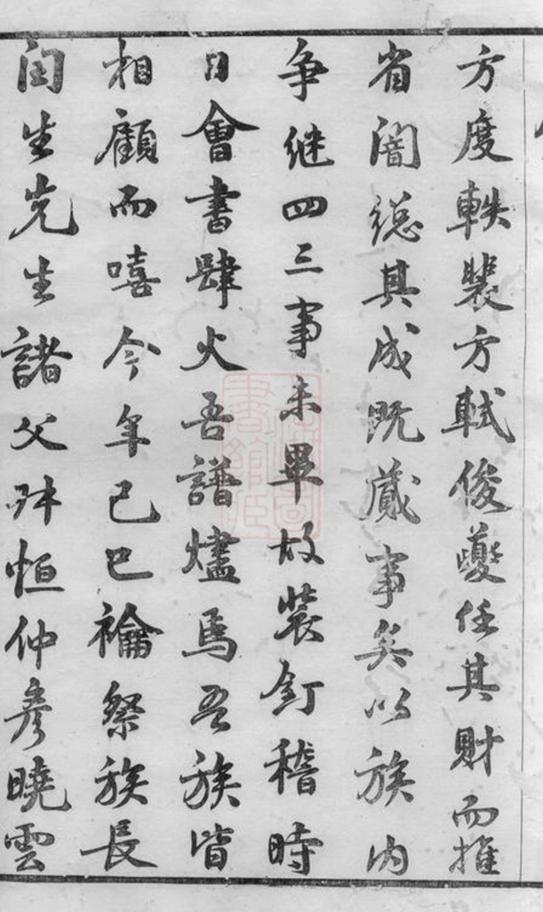 方度軼裴方軾俊夔任其財而推
省闇總其成既蕆事矣以族內
争继四三事未畢故裝釘稽時
日會書肆火吾譜燼焉吾族皆
相顧而嘻今年己巳禴祭族長
閏生先生諸父叔恒仲彦曉雲